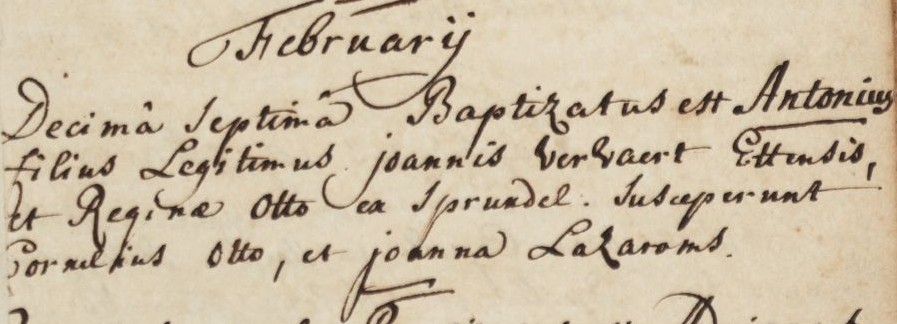 Februarij
Decimâ Septimâ Baptizatus est Antonius
filius Legitimus joannis Verhaert Ettensis,
et Reginæ Otto ex Sprundel. Susceperunt
Cornelius Otto, et joanna Lazaroms.